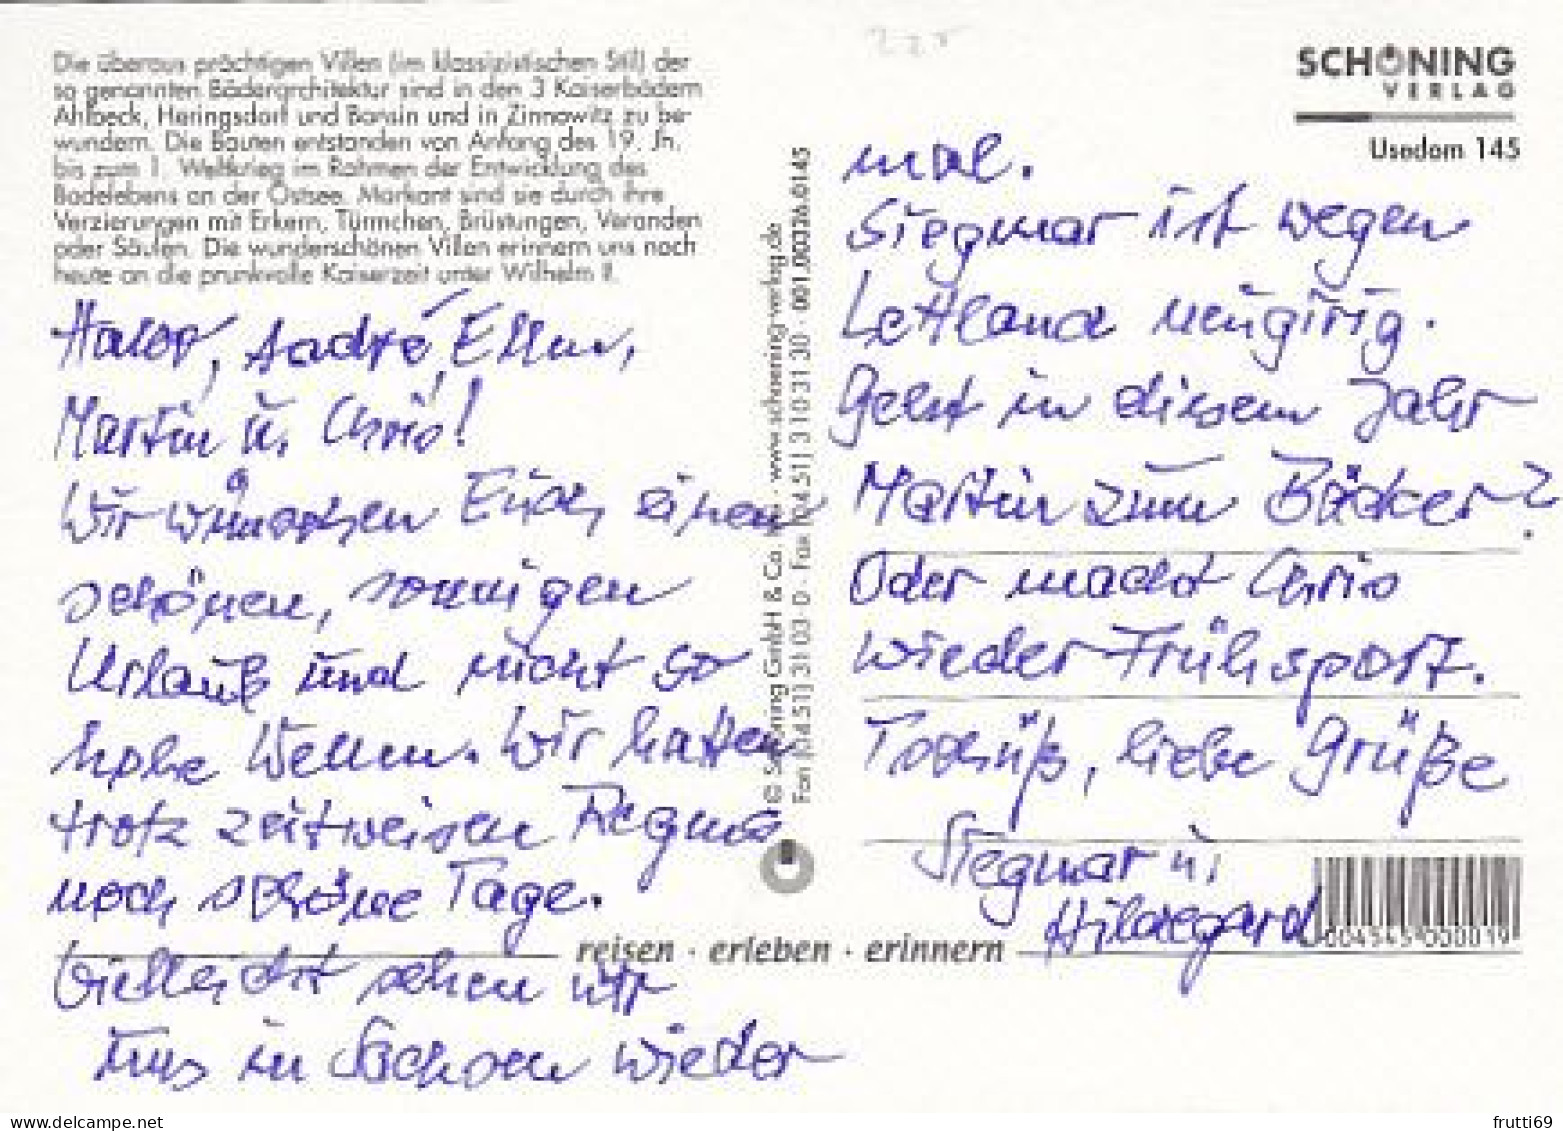 Die überaus prächtigen Villen (im klassizistischen Stil) der
so genannten Bäderarchitektur sind in den 3 Kaiserbädern
Ahlbeck, Heringsdorf und Bansin und in Zinnowitz zu be-
wundern. Die Bauten entstanden von Anfang des 19. Jh.
bis zum 1. Weltkrieg im Rahmen der Entwicklung des
Badelebens an der Ostsee. Markant sind sie durch ihre
Verzierungen mit Erkern, Türmchen, Brüstungen, Veranden
oder Säulen. Die wunderschönen Villen erinnern uns noch
heute an die prunkvolle Kaiserzeit unter Wilhelm II.
André, Ellen,
Martin u. Chris!
Wir wünschen Euch einen
schönen, sonnigen
Urlaub und nicht so
hohe Wellen. Wir hatten
trotz zeitweisen Regens
noch schöne Tage.
Vielleicht sehen wir
uns in Sachsen wieder
© Schöning GmbH & Co. KG · www.schoening-verlag.de
Fon (04 51) 3 10 3-0 · Fax (04 51) 3 10 31 30 · 001.00326.0145
SCHÖNING
VERLAG
Usedom 145
mal.
Siegmar ist wegen
Lettland neugirig.
Geht in diesem Jahr
Martin zum Bäcker?
Oder macht Chris
wieder Frühsport.
Tschüß, liebe Grüße
Siegmar u.
Hildegard
reisen · erleben · erinnern
004545 000019
delcampe.net
frutti69